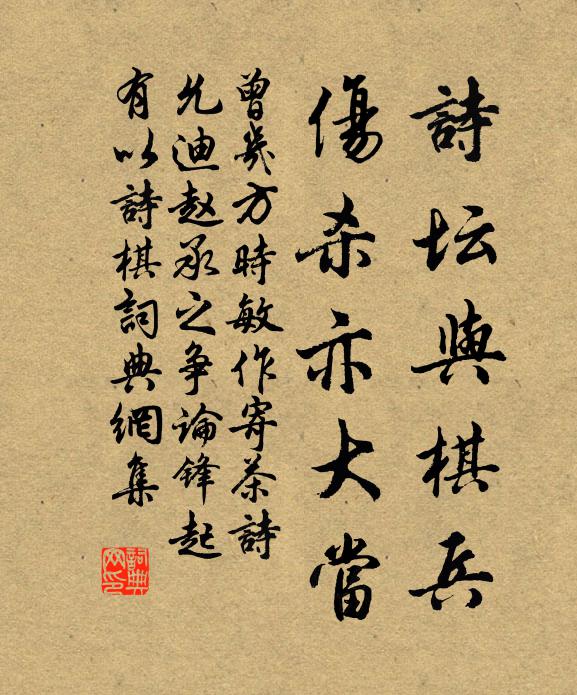 詩坛與棋兵
傷杀亦大當
曾幾方時敏作寄茶詩
允迪赵承之争論鋒起
有以詩棋詞典網集
詞典网印